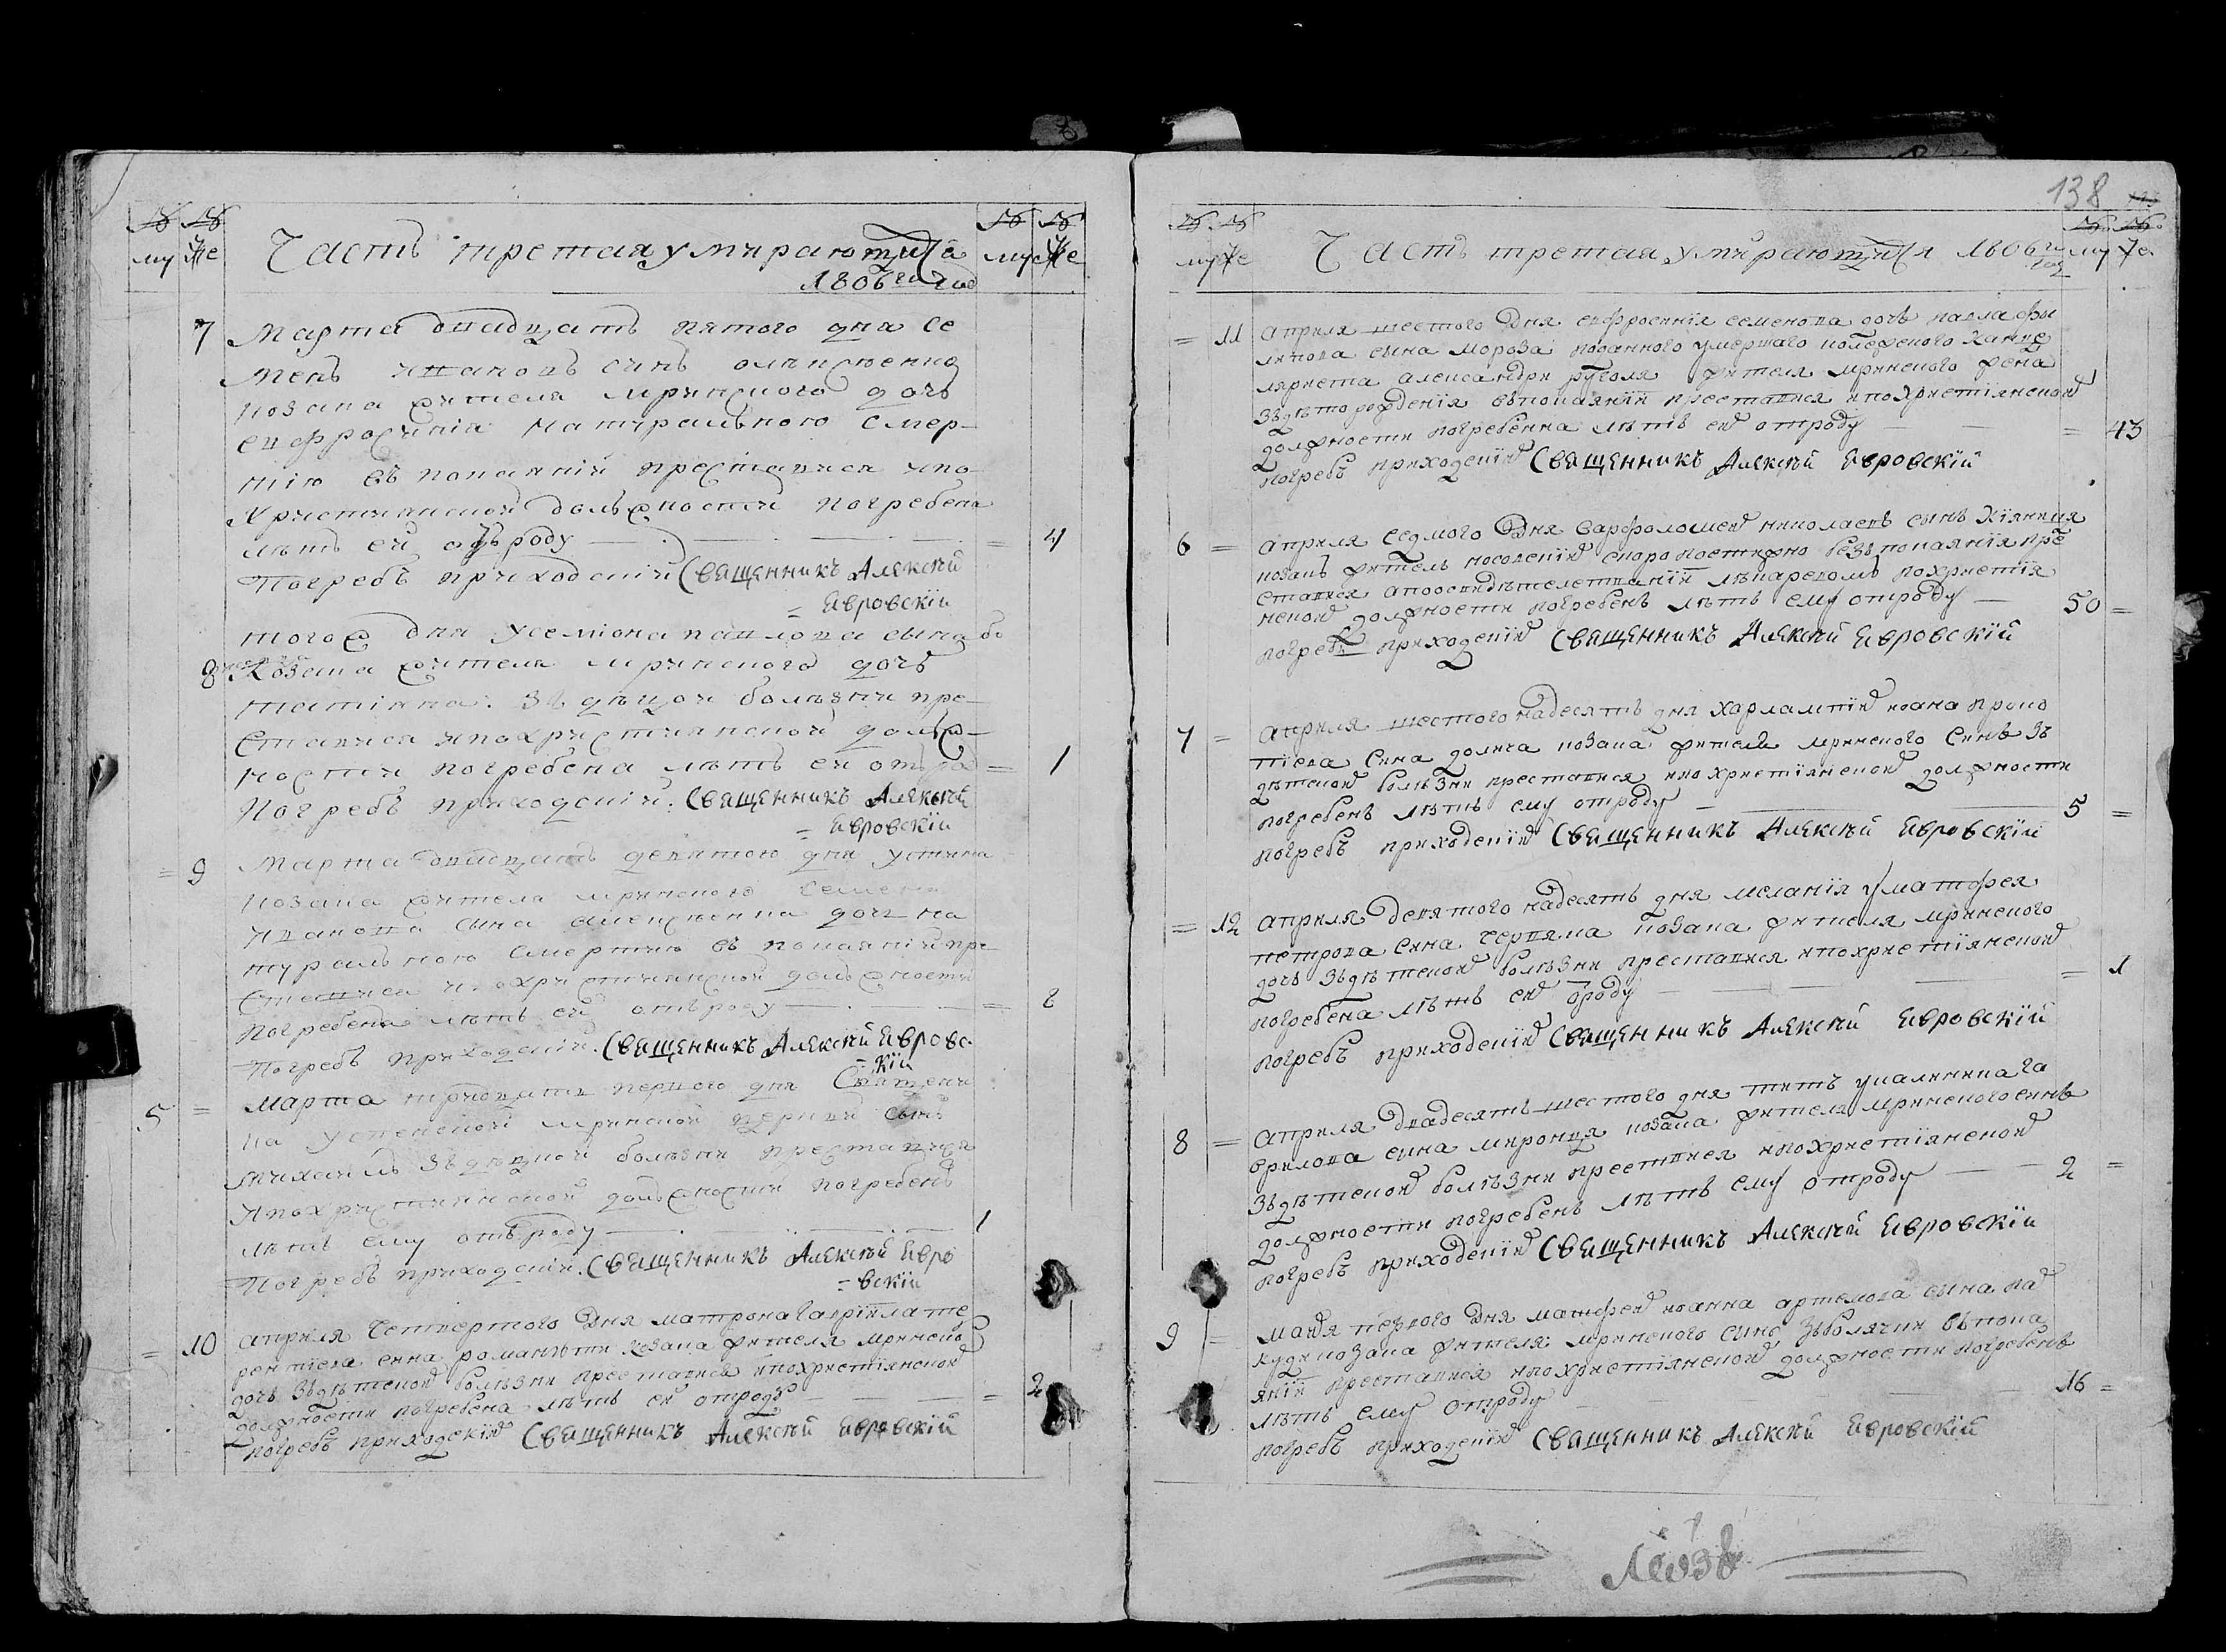 138
№ №
му же
Часть третая умирающихся
1806го год
№ №
му же
7 Марта двадцать пятого дня се
мень ивановъ синъ олексѣенко
козака жителя мринского дочь
евфросинія натуральною смер-
тію въ покаяніи преставися и по
христианской должности погребена
лѣтъ ей отъ роду = 4
Погребъ приходскій Священникъ Алексѣй
= Евровскій
того ж дня у семіона павлова сына
8 козака жителя мринского дочь
татіяна зъ дѣцкой болѣзни пре-
ставися и по християнской долж-
ности погребена лѣтъ ей отъ ро = 1
Погребъ приходскій Священникъ Алексѣй
= Евровскій
= 9 Марта двадцать девятого дня устина
козака жителя мринского семена
иванова сына алексѣенка дочь на
туральною смертию въ покаяніи пре
ставися и по християнской должности
погребена лѣтъ ей отъ роду =
Погребъ приходскій Священникъ Алексѣй Евровс
= кій
5 = Марта тридцать первого дня Священи
ка успенской мринской церкви сынъ
михаилъ зъ дѣцкой болѣзни преставися
и по християнской должности погребенъ
лѣтъ ему отъ роду 1
Погребъ приходскій Священникъ Алексѣй Евро
= вскій
= 10 Априля четвертого дня матрона гавріила те
рентіева сина козака жителя мринского
дочь зъ дѣтской болѣзни преставися и по христіянской
должности погребена лѣтъ ей отроду = 2
погребъ приходскій Священникъ Алексѣй Евровскій
№ №
му же
Часть третая умирающихся 1806го году
№ №
му же
= 11 Априля шестого дня евфросинія семенова дочь павла фи
липова сына мороза подданного умершаго колежского канце
ляриста александри жителя мринского жена
зъ дѣторождения въ покаяніи преставися и по христіянской
должности погребенна лѣтъ ей отроду = 43
погребъ приходскій Священникъ Алексѣй Евровскій
6 = Априля седмого дня варфоломей николаевъ сынъ кіяница
козакъ житель носовскій скоропостижно безъ покаянія пре
ставися а по освидѣтелствованіи лѣкаремъ по христія
нской должности погребенъ лѣтъ ему отроду 50 =
погребъ приходскій Священникъ Алексѣй Евровскій
7 = Априля шестого надесять дня харлампій иоана проко
піева сина долина козака жителя мринского синъ зъ
дѣтской болѣзни преставися и по христіянской должности
погребенъ лѣтъ ему отроду 5 =
погребъ приходскій Священникъ Алексѣй Евровскій
= 12 Априля девятого надесять дня меланія у матфея
петрова сина козака жителя мринского
дочь зъ дѣтской болѣзни преставися и по христіянской
погребена лѣтъ ей ороду = 1
погребъ приходскій Священникъ Алексѣй Евровскій
8 = Априля двадесять шестого дня титъ у калиника га
врилова сина миронця козака жителя мринского синъ
зъ дѣтской болѣзни преставися и по христіянской
должности погребенъ лѣтъ ему отроду 2 =
погребъ приходскій Священникъ Алексѣй Евровскій
9 = Майя первого дня матфей иоанна артемова сына
козака жителя мринского синъ зъ болячки въ покая
яніи преставися и по христіянской должности погребенъ
лѣтъ ему отроду 16 =
погребъ приходскій Священникъ Алексѣй Евровскій